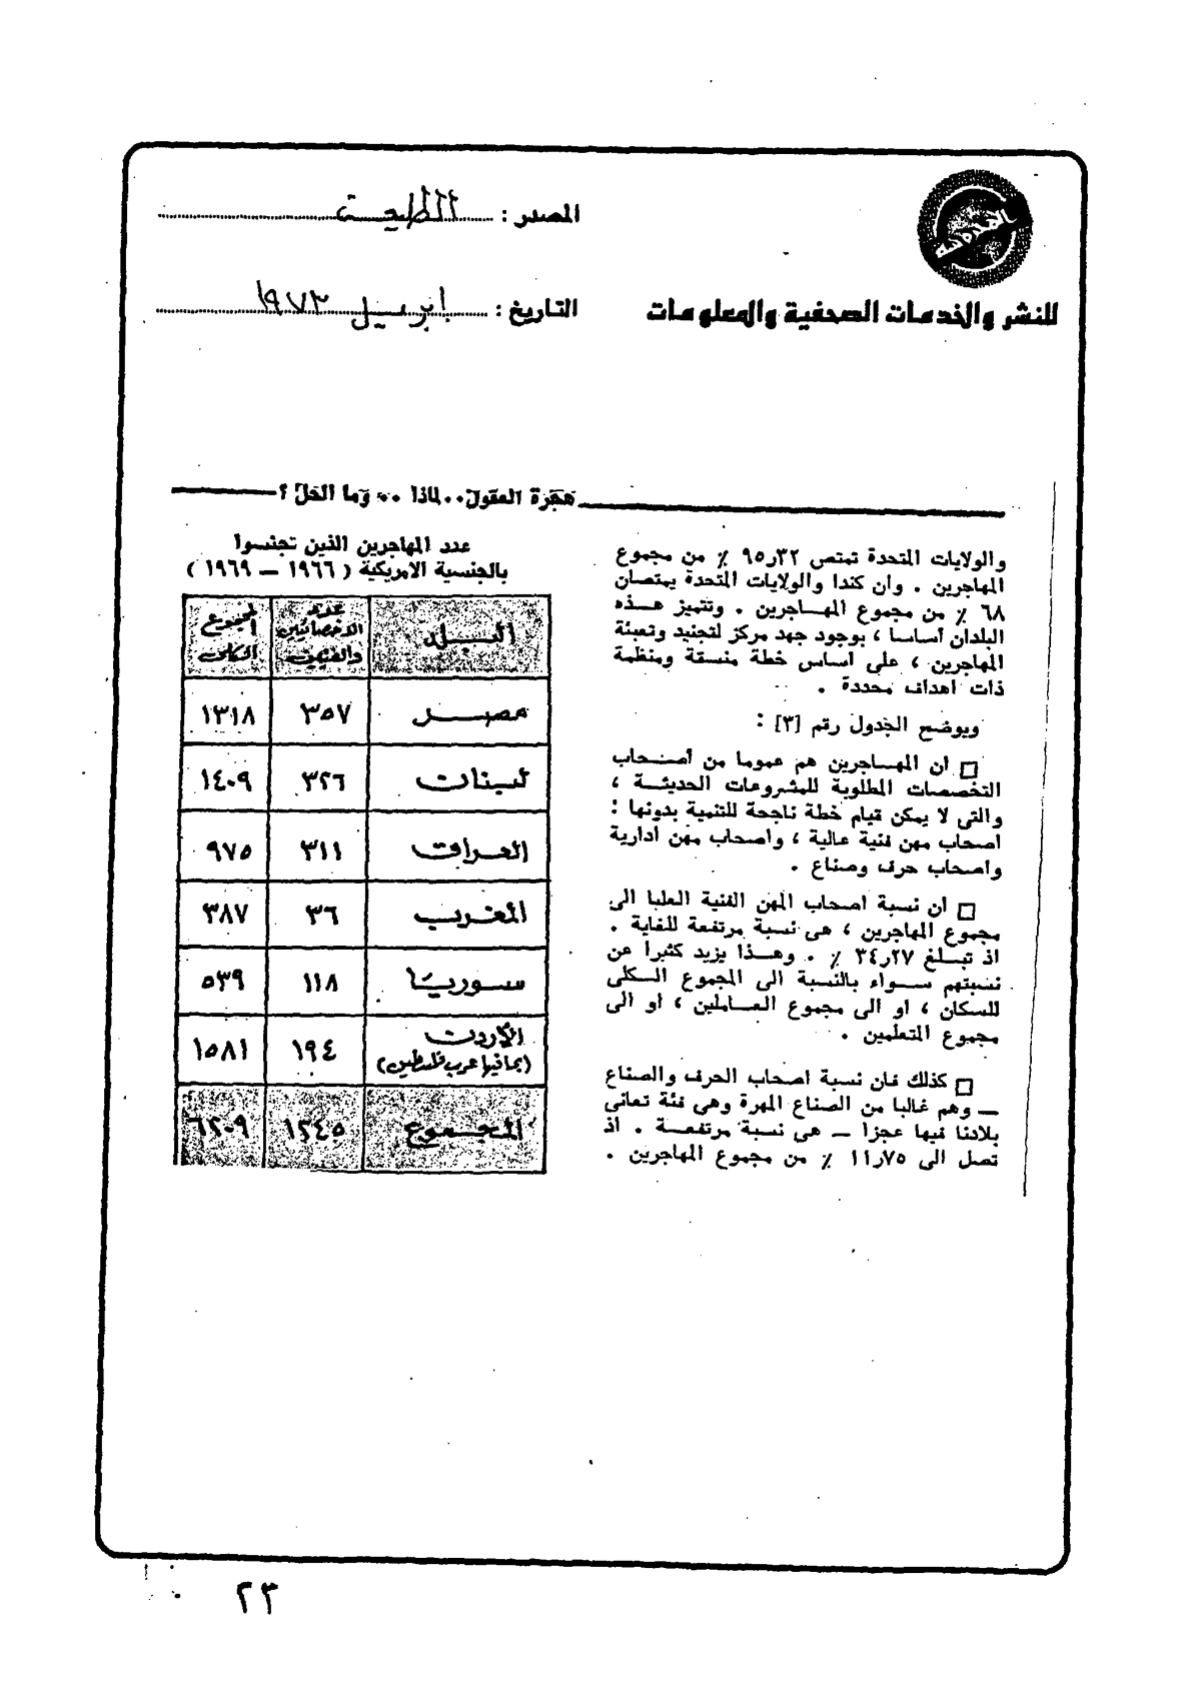 المصدر : الطليعة
التاريخ : ابريل ١٩٧٣
للنشر والخدمات الصحفية والمعلومات
هجرة العقول .. لماذا .. وما الحل ؟
والولايات المتحدة تمتص ٣٢ر٩٥ ٪ من مجموع
المهاجرين . وان كندا والولايات المتحدة يمتصان
٦٨ ٪ من مجموع المهاجرين . وتتميز هذه
البلدان أساسا ، بوجود جهد مركز لتجنيد وتعبئة
المهاجرين ، على أساس خطة منسقة ومنظمة
ذات اهداف محددة .
ويوضح الجدول رقم [٣] :
□ ان المهاجرين هم عموما من أصحاب
التخصصات المطلوبة للمشروعات الحديثة ،
والتى لا يمكن قيام خطة ناجحة للتنمية بدونها :
اصحاب مهن فنية عالية ، واصحاب مهن ادارية
واصحاب حرف وصناع .
□ أن نسبة اصحاب المهن الفنية العليا الى
مجموع المهاجرين ، هى نسبة مرتفعة للغاية .
اذ تبلغ ٢٧ر٣٤ ٪ . وهذا يزيد كثيرا عن
نسبتهم سواء بالنسبة الى المجموع الكلى
للسكان ، او الى مجموع العاملين ، او الى
مجموع المتعلمين .
□ كذلك فان نسبة اصحاب الحرف والصناع
— وهم غالبا من الصناع المهرة وهى فئة تعانى
بلادنا فيها عجزا — هى نسبة مرتفعة . اذ
تصل الى ٧٥ر١١ ٪ من مجموع المهاجرين .
عدد المهاجرين الذين تجنسوا
بالجنسية الامريكية ( ١٩٦٦ — ١٩٦٩ )
البلد عدد الاخصائيين والفنيين المجموع الكلى
مصر ٣٥٧ ١٣١٨
لبنان ٣٢٦ ١٤٠٩
العراق ٣١١ ٩٧٥
المغرب ٣٦ ٣٨٧
سوريا ١١٨ ٥٣٩
الأردن (بما فيها عرب فلسطين) ١٩٤ ١٥٨١
المجموع ١٢٤٥ ٦٢٠٩
٢٣